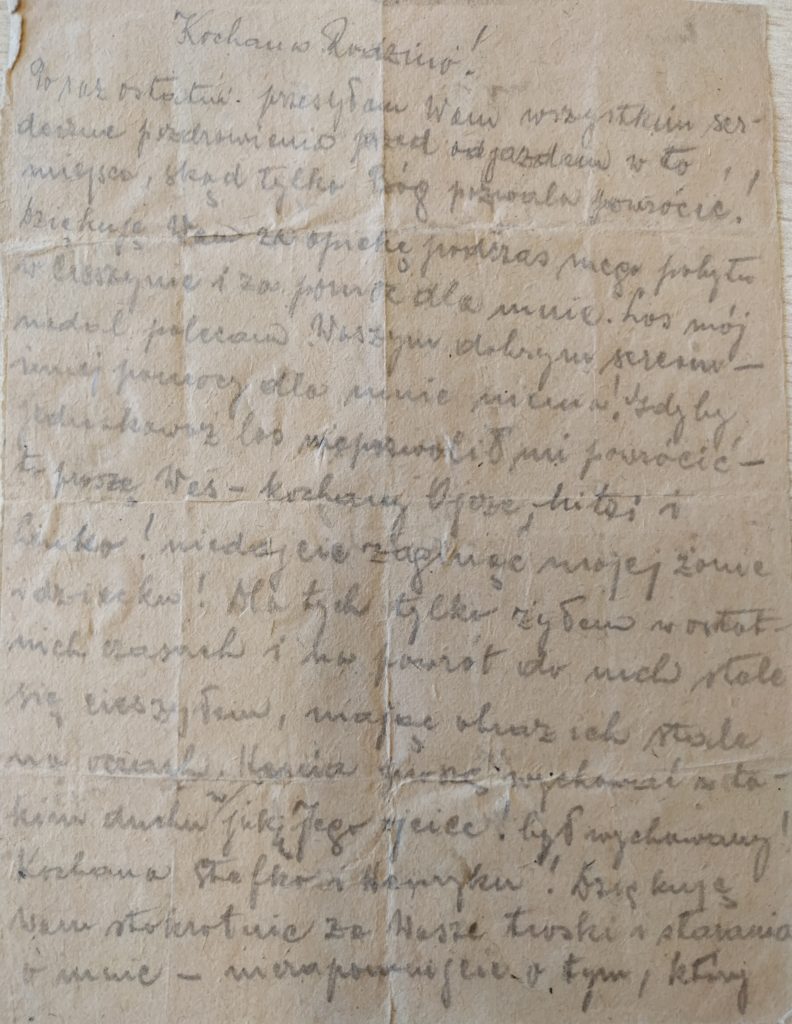 Kochana Rodzino!
Po raz ostatni przesyłam Wam wszystkim ser-
deczne pozdrowienia przed odjazdem w to
miejsce, skąd tylko Bóg pozwala powrócić!
Dziękuję Wam za opiekę podczas mego pobytu
w Cieszynie i za pomoc dla mnie. Los mój
nadal polecam Waszym dobrym sercom –
innej pomocy dla mnie niema! Gdyby
jednakowoż los niepozwolił mi powrócić –
to proszę Was – kochany Ojcze, Mitzi i
Linko! niedajcie zaginąć mojej żonie
i dziecku! Dla tych tylko żyłem w ostat-
nich czasach i na powrót do nich stale
się cieszyłem, mając obraz ich stale
na oczach. Kazia proszę wychować w ta-
kim duchu w jakim Jego ojciec! był wychowany!
Kochana Stefko i Henryku! Dziękuję
Wam stokrotnie za Wasze troski i starania
o mnie – niezapomnijcie o tym, który